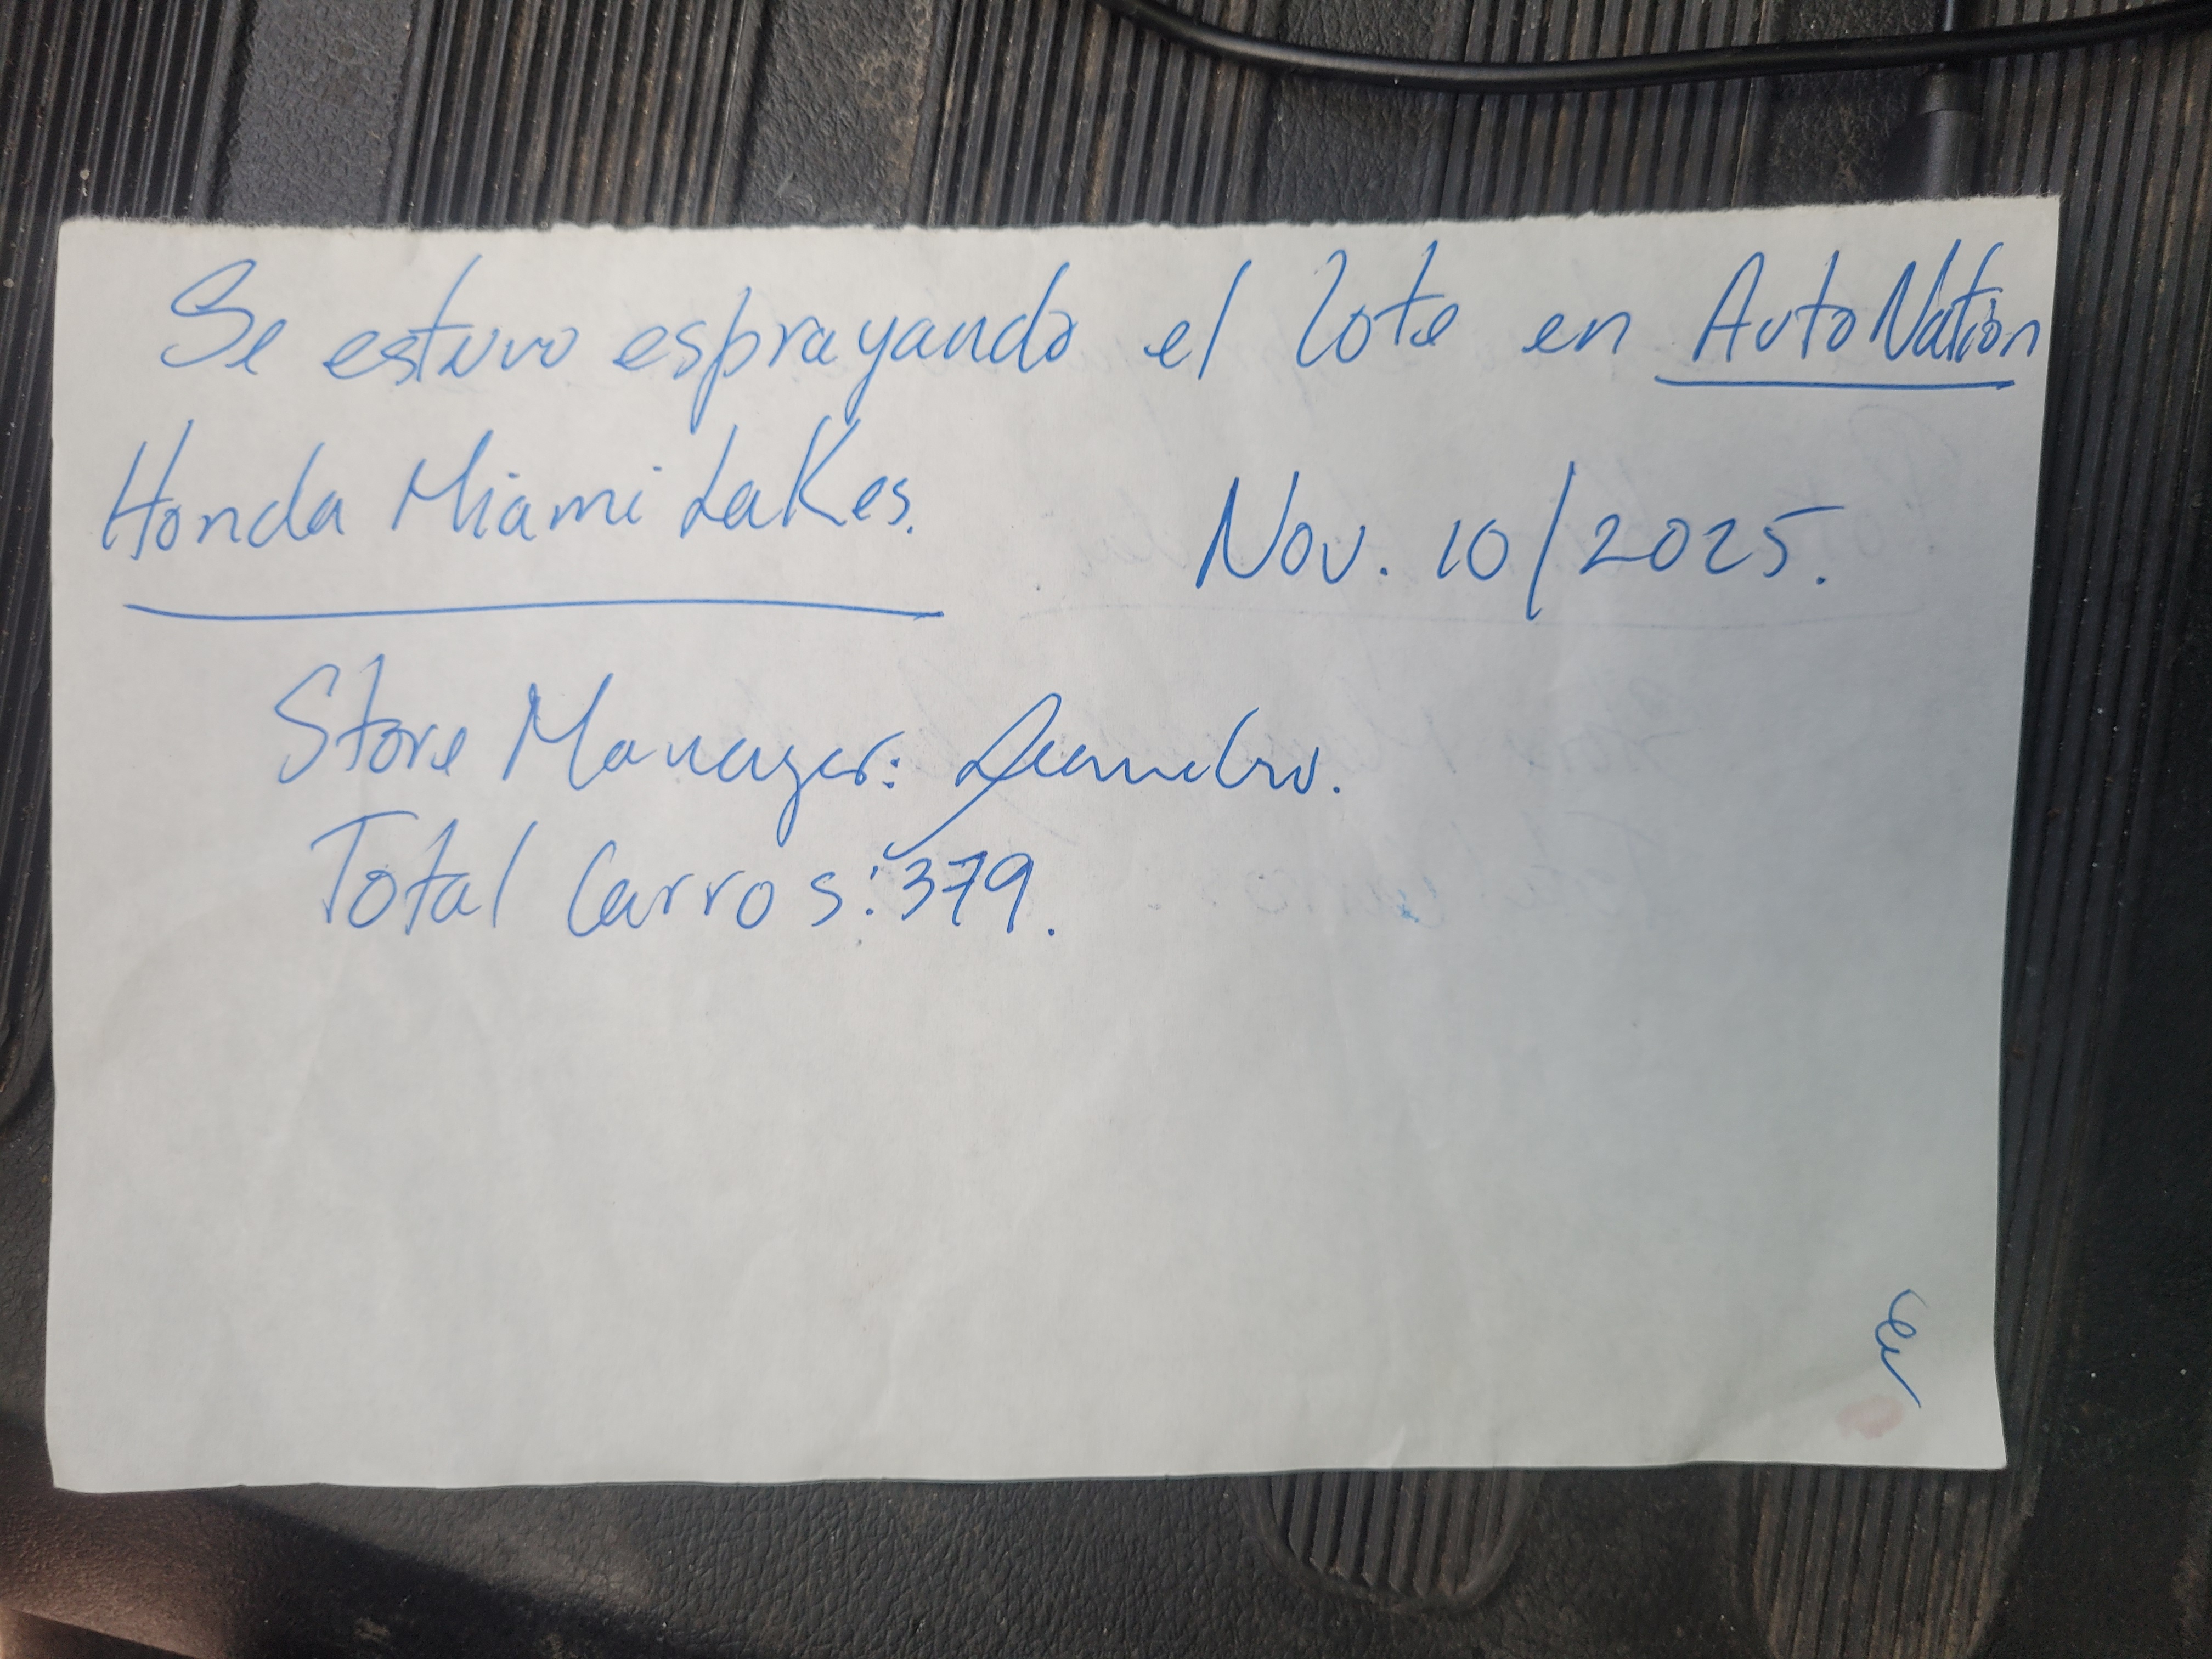 Se estuvo esprayando el lote en AutoNation
Honda Miami Lakes. Nov. 10/2025.
Store Manager: Leandro.
Total Carros: 379.